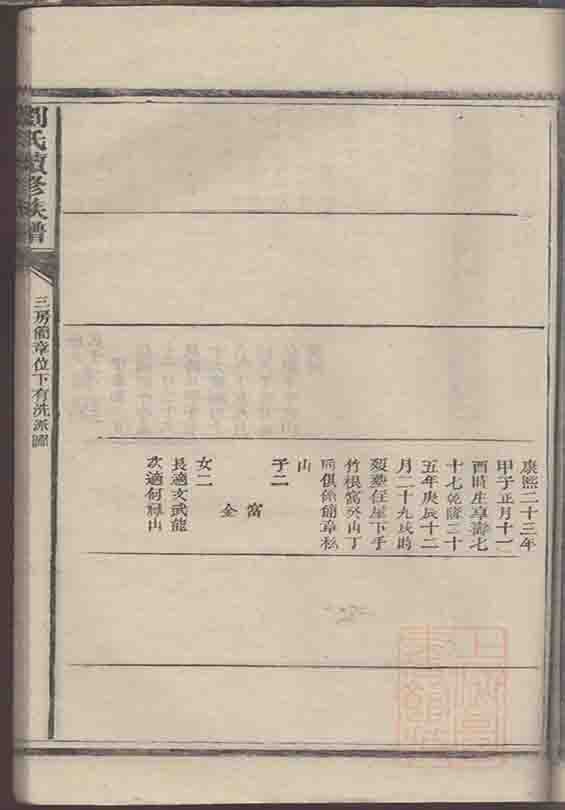 康熙二十三年
甲子正月十一
酉時生享壽七
十七乾隆二十
五年庚辰十二
月二十九戌時
歿葬住屋下手
竹根窩癸山丁
向俱係簡章私
山
子二
窩
全
女二
長適文武龍
次適何福山
劉氏續修族譜
三房簡章位下有洗派圖